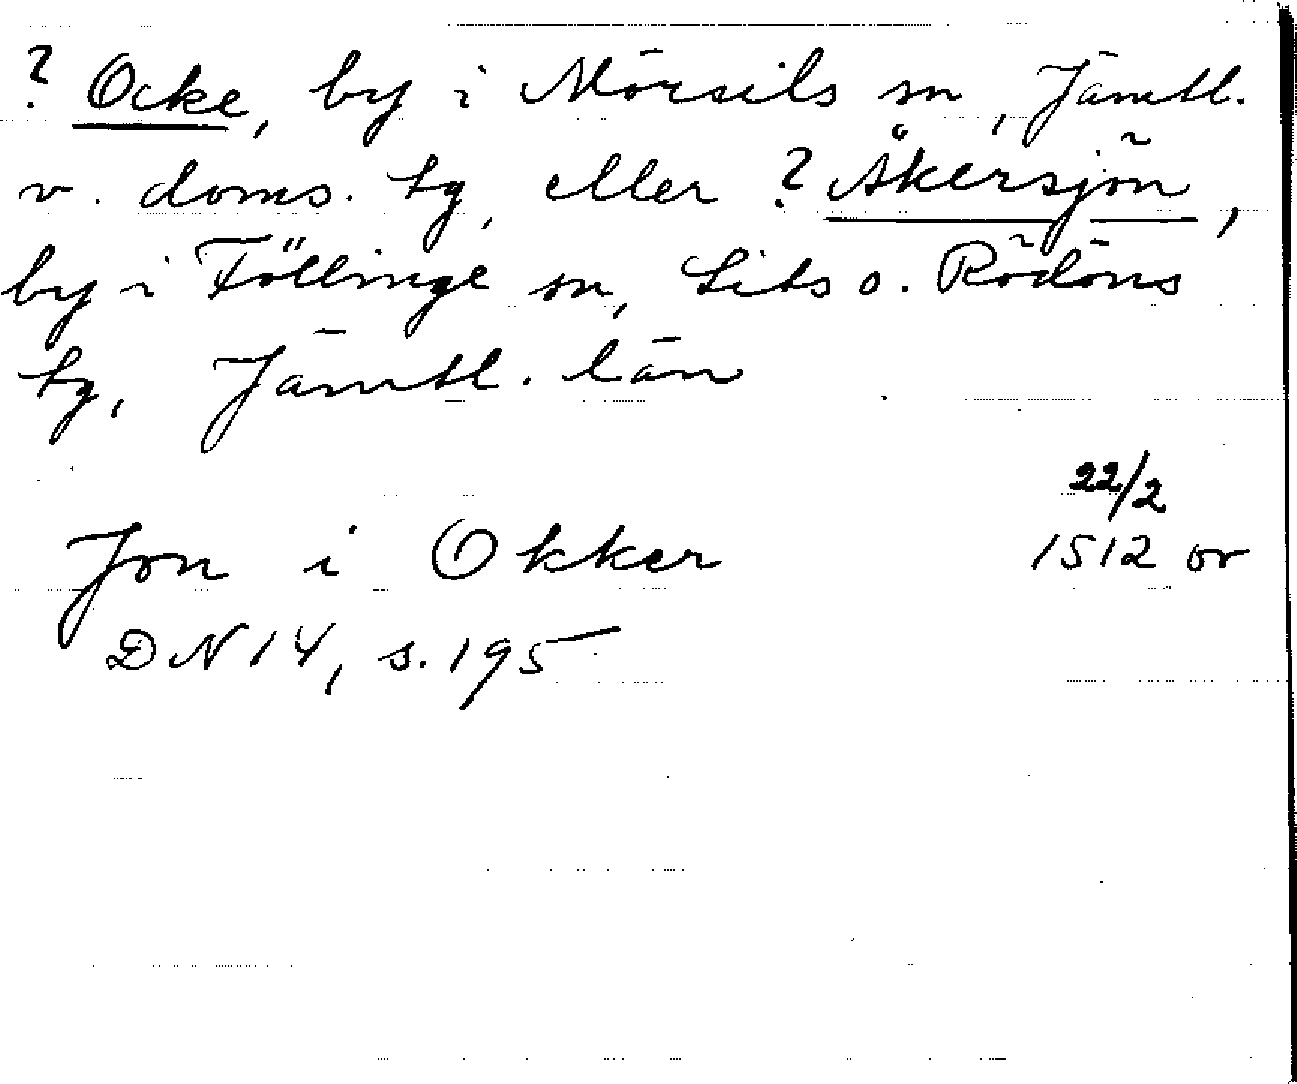 ? Ocke, by i Mörsils sn, Jämtl.
v. doms. tg, eller ? Åkersjön,
by i Föllinge sn, Lits o. Rödöns
tg, Jämtl. län
22/2
Jon i Okker 1512 or
DN 14, s. 195